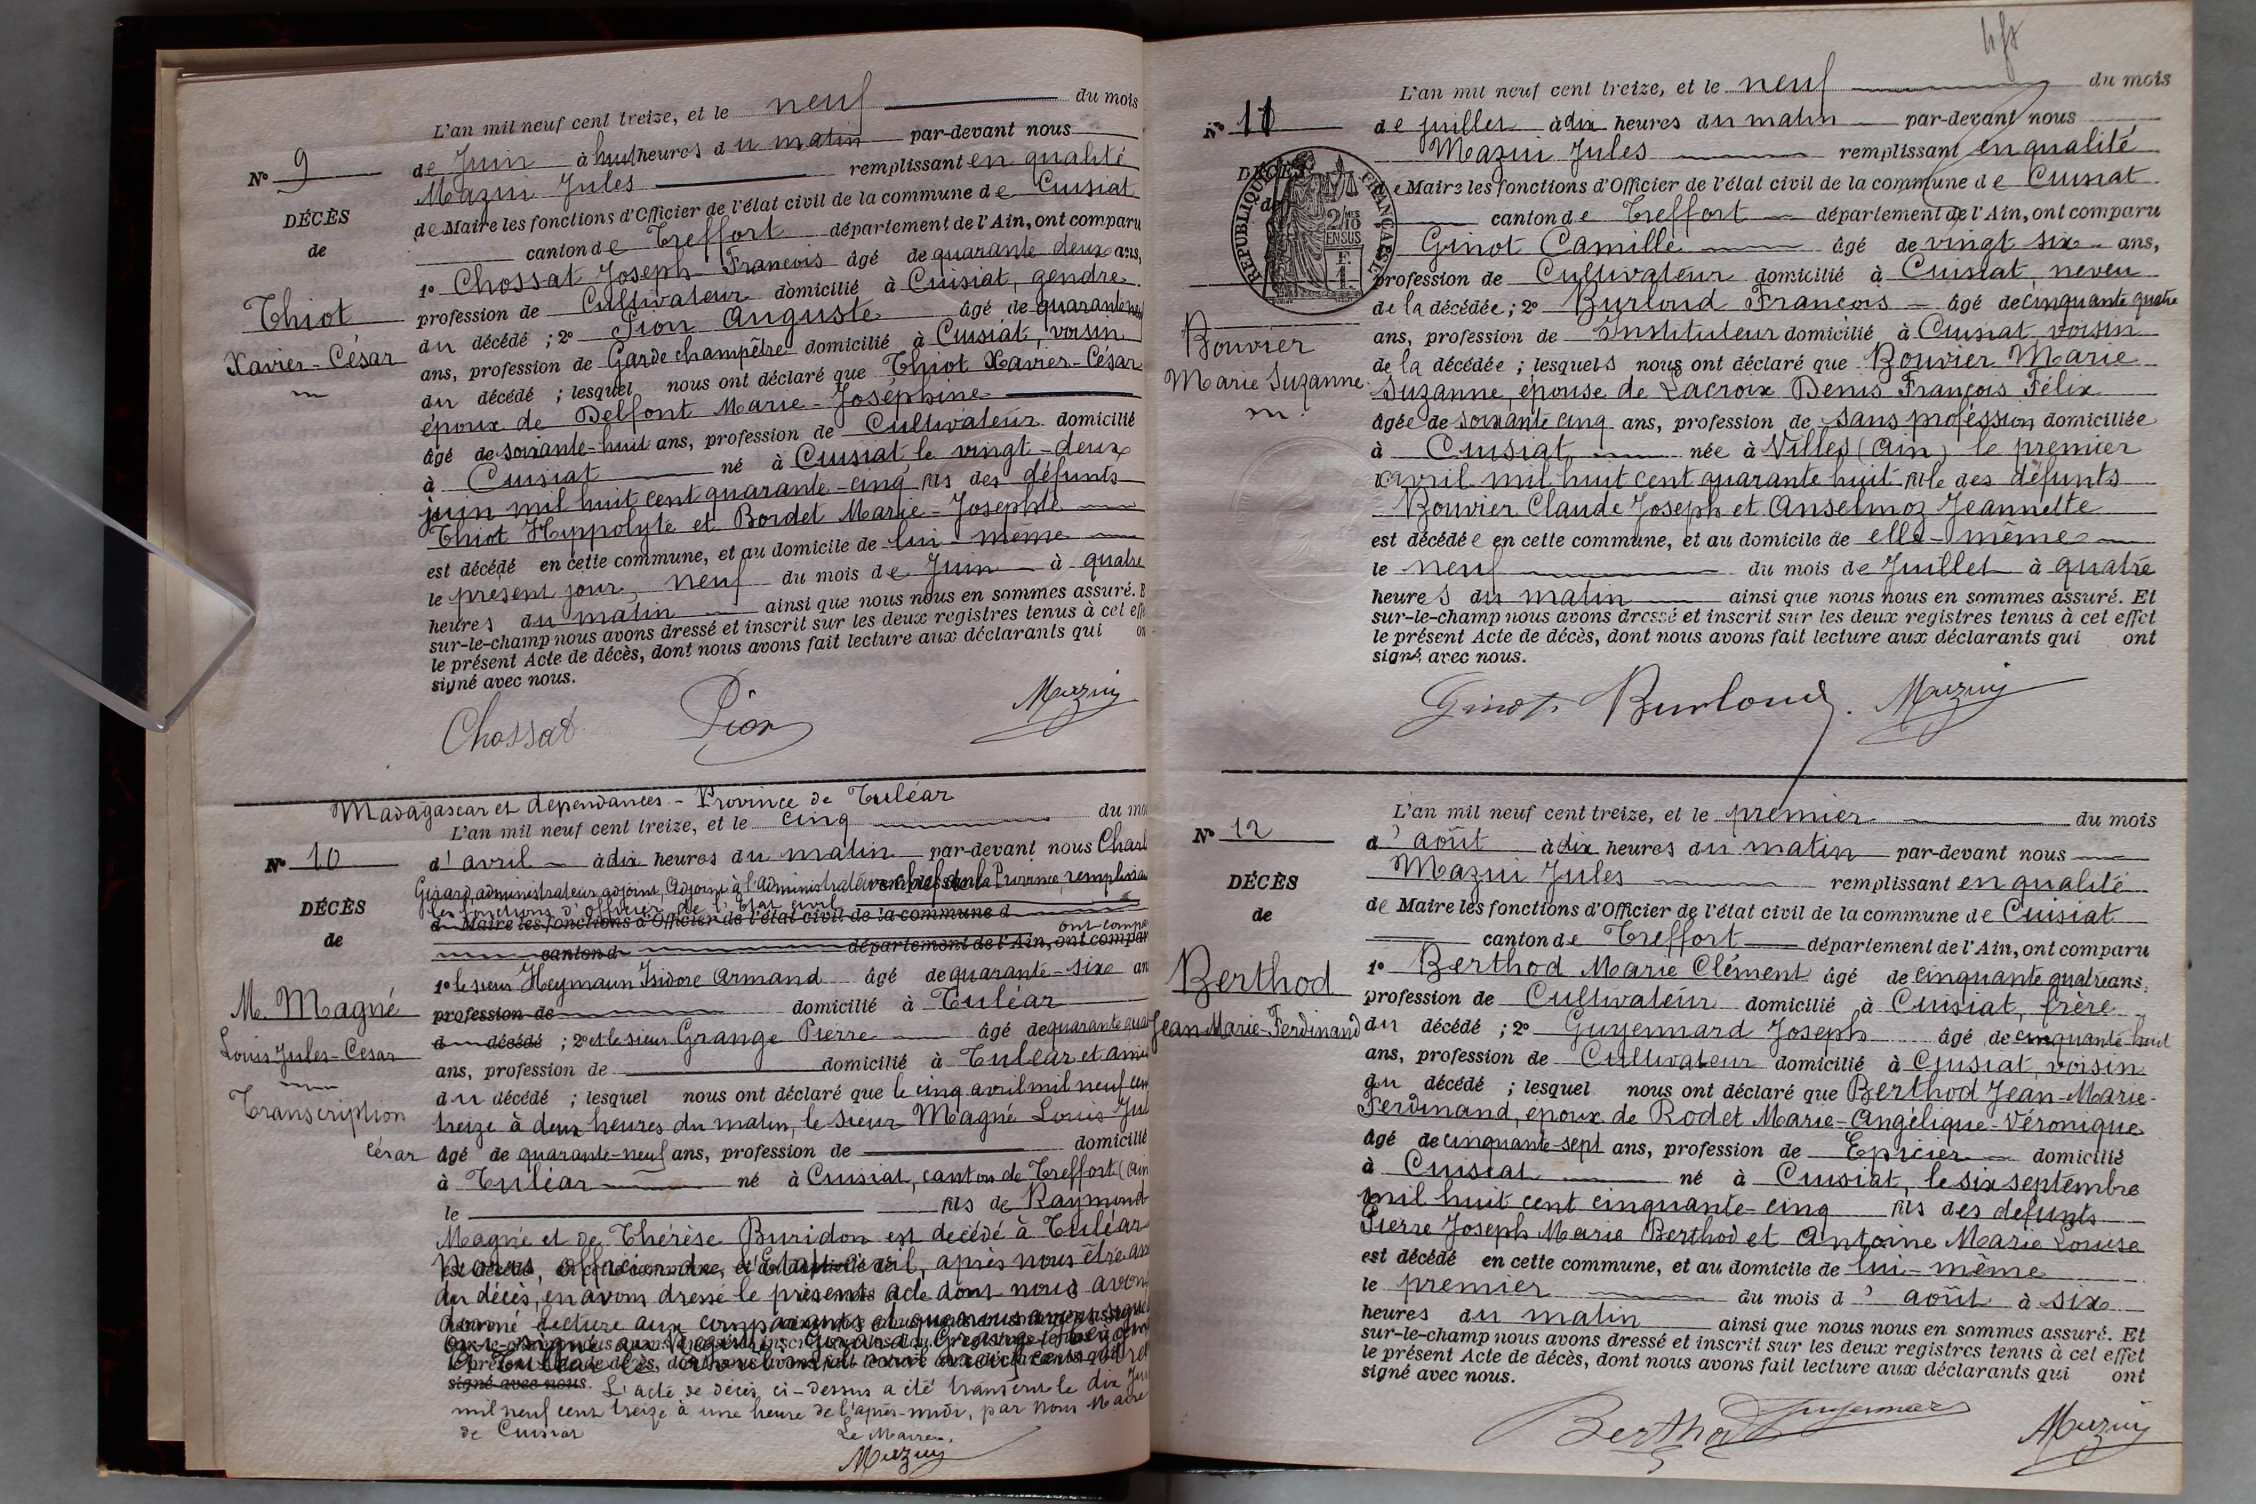 L'an mil neuf cent treize, et le neuf du mois
de Juin à huit heures du matin par-devant nous
Mazuy Jules remplissant en qualité
de Maire les fonctions d'Officier de l'état civil de la commune de Cuisiat
canton de Treffort département de l'Ain, ont comparu
1º Chossat Joseph François âgé de quarante deux ans,
profession de Cultivateur domicilié à Cuisiat, gendre
du décédé ; 2º Pion Auguste âgé de quarante
ans, profession de Garde champêtre domicilié à Cuisiat, voisin
du décédé ; lesquel nous ont déclaré que Thiot Xavier-César
époux de Delfont Marie-Joséphine
âgé de soixante-huit ans, profession de Cultivateur domicilié
à Cuisiat né à Cuisiat, le vingt-deux
juin mil huit cent quarante-cinq fils des défunts
Thiot Hyppolyte et Bordet Marie-Josephte
est décédé en cette commune, et au domicile de lui-même
le présent jour, neuf du mois de Juin à quatre
heures du matin ainsi que nous nous en sommes assuré. E
sur-le-champ nous avons dressé et inscrit sur les deux registres tenus à cet effe
le présent Acte de décès, dont nous avons fait lecture aux déclarants qui on
signé avec nous.
Chossat Pion Mazuy
Nº 9
DÉCÈS
de
Thiot
Xavier-César
Madagascar et dépendances - Province de Tuléar
L'an mil neuf cent treize, et le cinq du mo
d'avril à dix heures du matin par-devant nous Charl
Girard, administrateur adjoint, Adjoint à l'administrateur chef de la Province, remplissa
les fonctions d'officier de l'Etat civil
d Maire les fonctions d'Officier de l'état civil de la commune d
ont compa
canton d département de l'Ain, ont compar
1º le sieur Heymann Isidore Armand âgé de quarante-six an
profession de domicilié à Tuléar
d décédé ; 2º et le sieur Grange Pierre âgé de quarante qua
ans, profession de domicilié à Tuléar et amis
du décédé ; lesquel nous ont déclaré que le cinq avril mil neuf cen
treize à deux heures du matin, le sieur Magné Louis Jul
César âgé de quarante-neuf ans, profession de domicilié
à Tuléar né à Cuisiat, canton de Treffort (Ain
le fils de Raymond
Magné et de Thérèse Buridon est décédé à Tuléar
Nous officier de l'Etat civil, après nous être ass
du décès, en avons dressé le présent acte dont nous avons
donné lecture aux comparants et que nous avons signé
signé avec nous. L'acte de décès ci-dessus a été transcrit le dix Jui
mil neuf cent treize à une heure de l'après-midi, par nous Maire
de Cuisiat
Le Maire,
Mazuy
Nº 10
DÉCÈS
de
M. Magné
Louis Jules-César
Transcription
L'an mil neuf cent treize, et le neuf du mois
de juillet à dix heures du matin par-devant nous
Mazuy Jules remplissant en qualité
de Maire les fonctions d'Officier de l'état civil de la commune de Cuisiat
canton de Treffort département de l'Ain, ont comparu
Ginot Camille âgé de vingt six ans,
profession de Cultivateur domicilié à Cuisiat, neveu
de la décédée ; 2º Burloud François âgé de cinquante quatre
ans, profession de Instituteur domicilié à Cuisiat, voisin
de la décédée ; lesquels nous ont déclaré que Bouvier Marie
Suzanne, épouse de Lacroix Denis François Félix
âgée de soixante cinq ans, profession de sans profession domiciliée
à Cuisiat née à Villes (Ain) le premier
avril mil huit cent quarante huit fille des défunts
Bouvier Claude Joseph et Anselmoz Jeannette
est décédée en cette commune, et au domicile de elle-même
le neuf du mois de Juillet à quatre
heures du matin ainsi que nous nous en sommes assuré. Et
sur-le-champ nous avons dressé et inscrit sur les deux registres tenus à cet effet
le présent Acte de décès, dont nous avons fait lecture aux déclarants qui ont
signé avec nous.
Ginot Burloud. Mazuy
Nº 11
DÉCÈS
de
RÉPUBLIQUE FRANÇAISE
2/10
EN SUS
Bouvier
Marie Suzanne
L'an mil neuf cent treize, et le premier du mois
d'août à dix heures du matin par-devant nous
Mazuy Jules remplissant en qualité
de Maire les fonctions d'Officier de l'état civil de la commune de Cuisiat
canton de Treffort département de l'Ain, ont comparu
1º Berthod Marie Clément âgé de cinquante quatre ans,
profession de Cultivateur domicilié à Cuisiat, frère
du décédé ; 2º Guyennard Joseph âgé de cinquante huit
ans, profession de Cultivateur domicilié à Cuisiat, voisin
du décédé ; lesquel nous ont déclaré que Berthod Jean-Marie-
Ferdinand, époux de Rodet Marie-Angélique-Véronique
âgé de cinquante-sept ans, profession de Epicier domicilié
à Cuisiat né à Cuisiat, le six septembre
mil huit cent cinquante-cinq fils des défunts
Pierre Joseph Marie Berthod et Antoine Marie Louise
est décédé en cette commune, et au domicile de lui-même
le premier du mois d'août à six
heures du matin ainsi que nous nous en sommes assuré. Et
sur-le-champ nous avons dressé et inscrit sur les deux registres tenus à cet effet
le présent Acte de décès, dont nous avons fait lecture aux déclarants qui ont
signé avec nous.
Berthod Guyennard Mazuy
Nº 12
DÉCÈS
de
Berthod
Jean Marie-Ferdinand